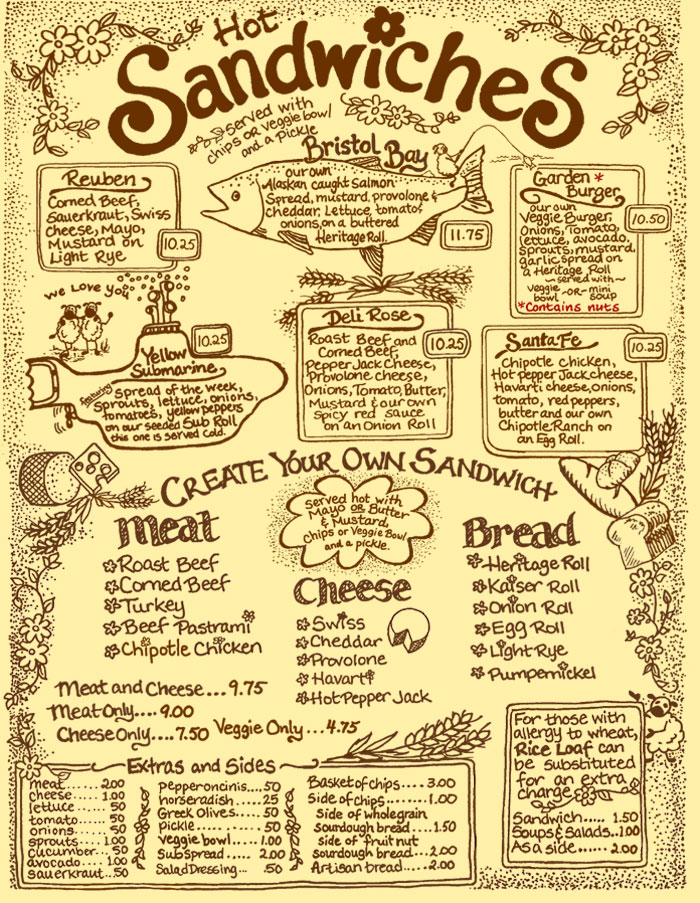 Hot
Sandwiches
served with
chips or veggie bowl
and a pickle
Reuben
Corned Beef,
Sauerkraut, Swiss
Cheese, Mayo,
Mustard on
Light Rye
10.25
Bristol Bay
our own
Alaskan caught Salmon
Spread, mustard, provolone &
cheddar, Lettuce, tomato,
onions, on a buttered
Heritage Roll.
11.75
Garden *
Burger
10.50
our own
Veggie Burger,
Onions, Tomato,
lettuce, avocado,
sprouts, mustard,
garlic spread on
a Heritage Roll
~served with~
veggie -OR- mini
bowl soup
*Contains nuts
we Love you
Yellow
Submarine
10.25
featuring
spread of the week,
sprouts, lettuce, onions,
tomatoes, yellow peppers
on our seeded Sub Roll
this one is served cold.
Deli Rose
Roast Beef and
Corned Beef,
Pepper Jack Cheese,
Provolone cheese,
Onions, Tomato, Butter,
Mustard & our own
spicy red sauce
on an Onion Roll
10.25
Santa Fe
10.25
Chipotle chicken,
Hot pepper Jack cheese,
Havarti cheese, onions,
tomato, red peppers,
butter and our own
Chipotle Ranch on
an Egg Roll.
Create Your Own Sandwich
served hot with
Mayo OR Butter
& Mustard,
Chips or Veggie Bowl
and a pickle.
Meat
Roast Beef
Corned Beef
Turkey
Beef Pastrami
Chipotle Chicken
Cheese
Swiss
Cheddar
Provolone
Havarti
Hot Pepper Jack
Bread
Heritage Roll
Kaiser Roll
Onion Roll
Egg Roll
Light Rye
Pumpernickel
Meat and Cheese...9.75
Meat Only....9.00
Cheese Only....7.50
Veggie Only...4.75
Extras and Sides
meat.......2.00
cheese.......1.00
lettuce.......50
tomato.......50
onions.......50
sprouts.....1.00
cucumber...50
avocado....1.00
sauerkraut...50
Pepperoncinis...50
horseradish....25
Greek Olives....50
pickle.......50
veggie bowl....1.00
Sub Spread.....2.00
Salad Dressing...50
Basket of chips....3.00
Side of chips.....1.00
Side of whole grain
sourdough bread...1.50
side of fruit nut
sourdough bread....2.00
Artisan bread....2.00
For those with
allergy to wheat,
Rice Loaf can
be substituted
for an extra
charge
Sandwich.....1.50
Soups & Salads..1.00
As a side......2.00